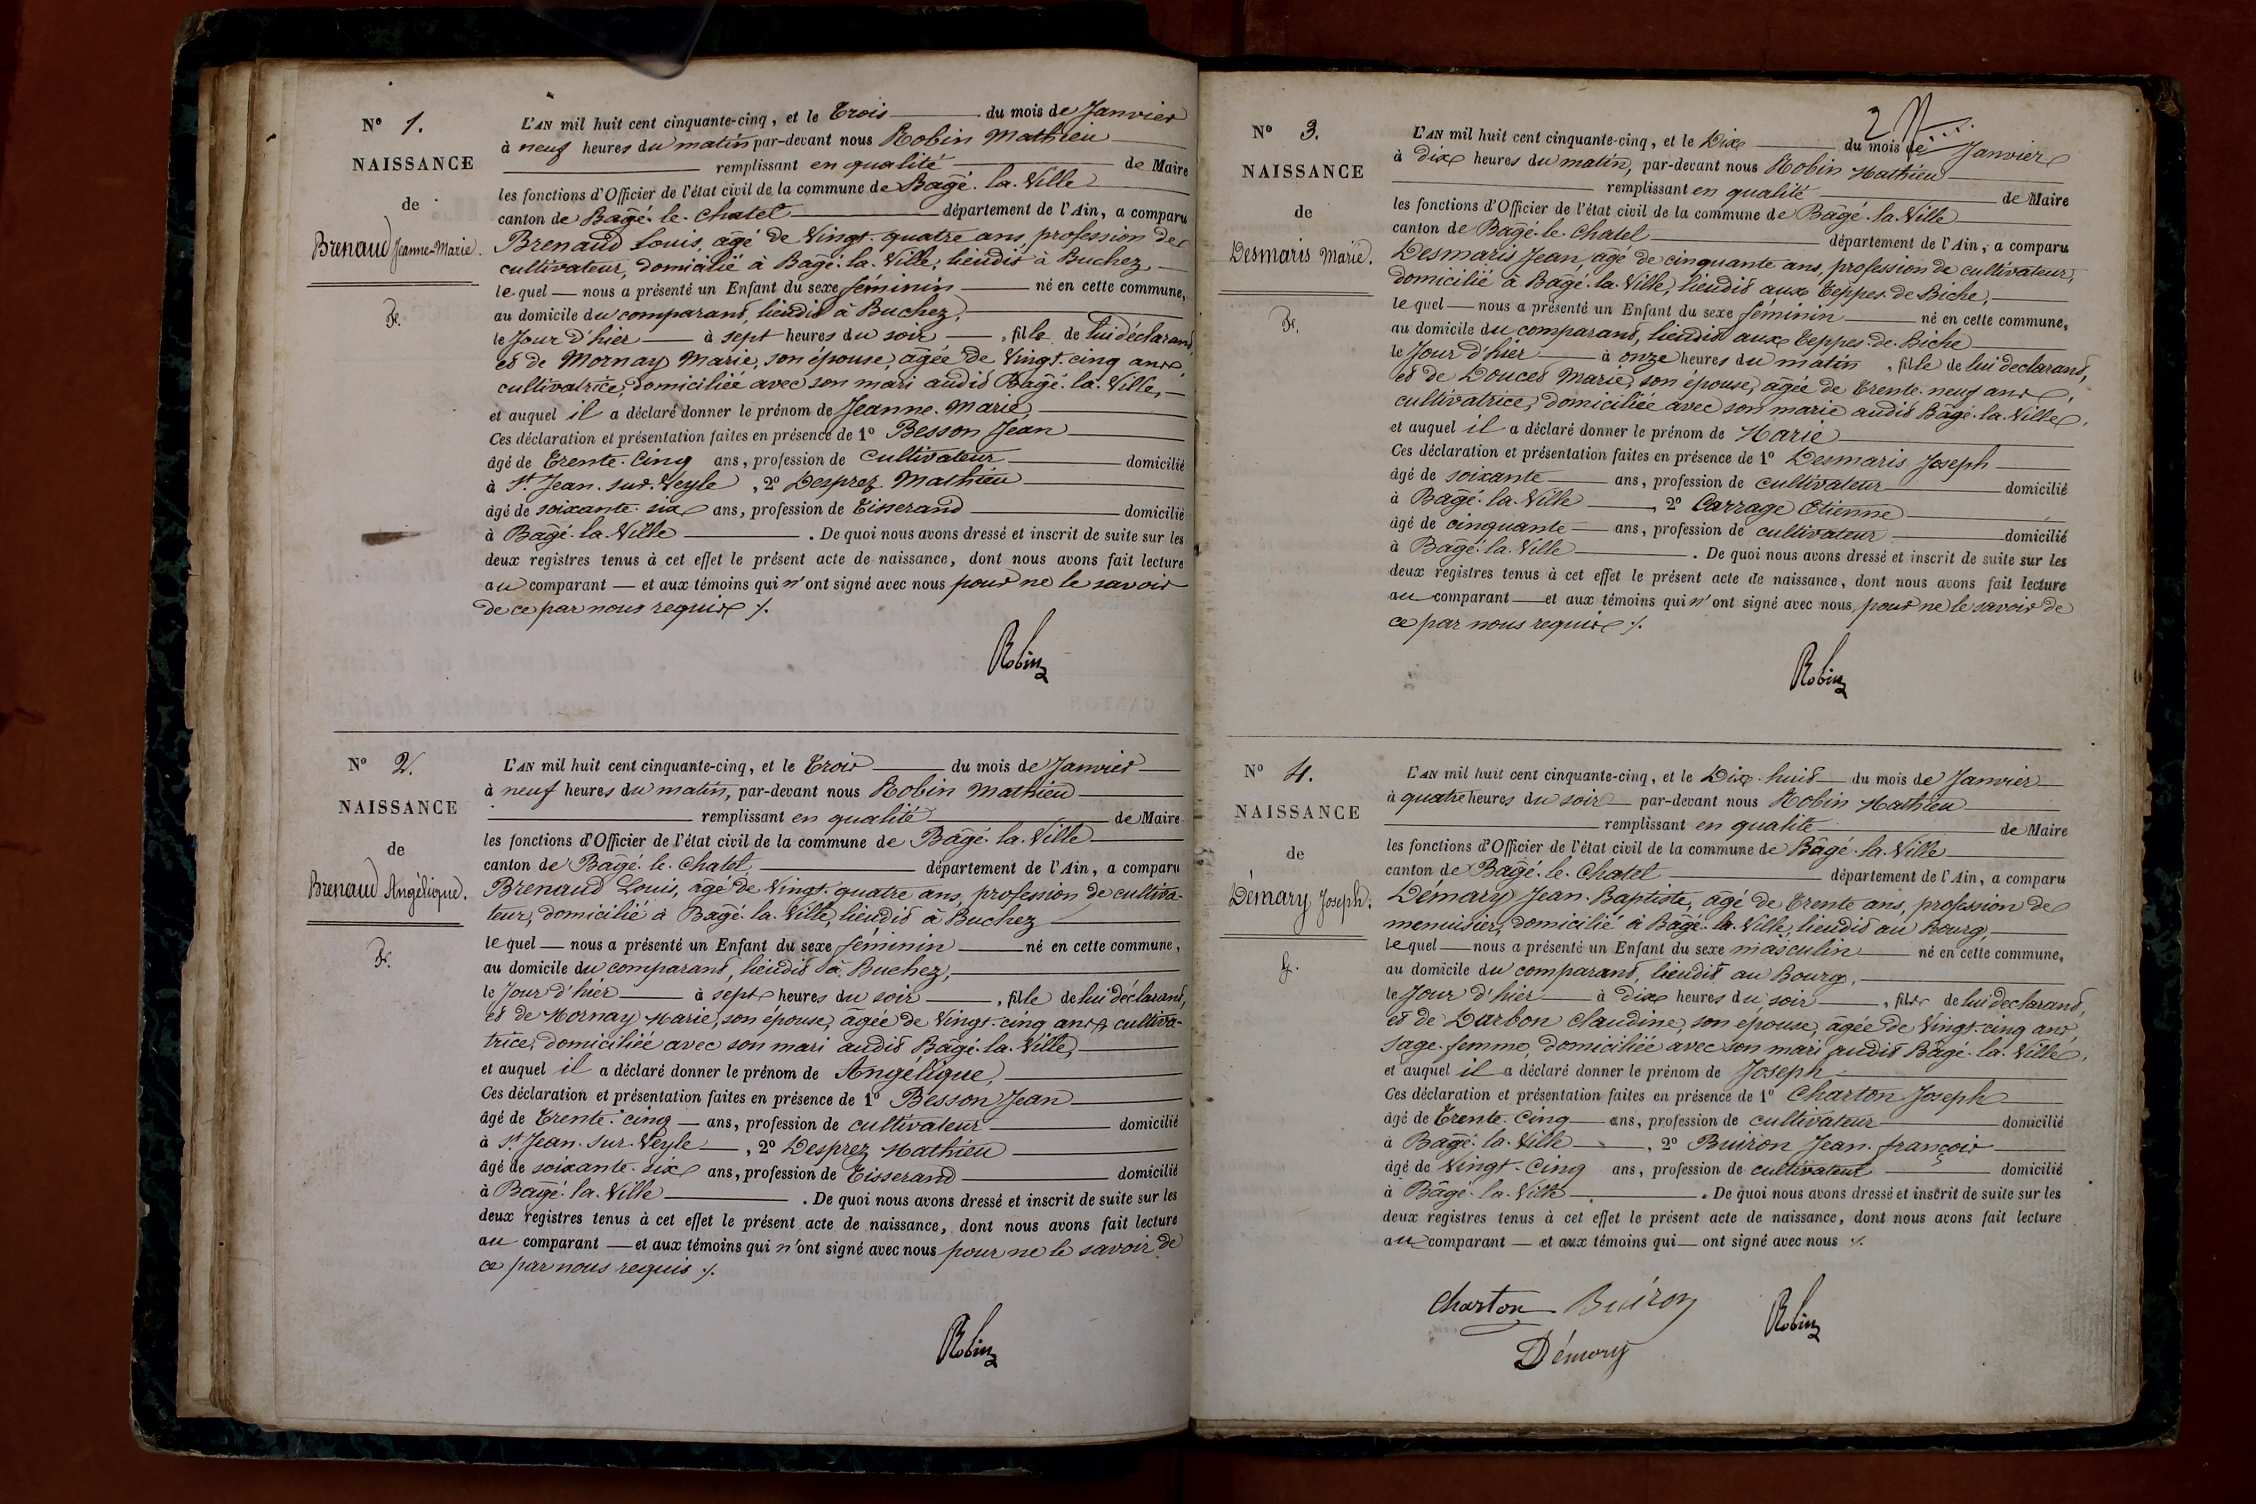 N° 1.
NAISSANCE
de
Brenaud Jeanne-Marie.
F.
L'AN mil huit cent cinquante-cinq, et le Trois du mois de Janvier
à neuf heures du matin par-devant nous Robin Mathieu
remplissant en qualité de Maire
les fonctions d'Officier de l'état civil de la commune de Bâgé-la-Ville
canton de Bâgé-le-Chatel département de l'Ain, a comparu
Brenaud Louis, âgé de Vingt-quatre ans, profession de
cultivateur, domicilié à Bâgé-la-Ville, lieudit à Buchez
lequel nous a présenté un Enfant du sexe féminin né en cette commune,
au domicile du comparant, lieudit à Buchez,
le Jour d'hier à sept heures du soir, fille de lui déclarant,
et de Mornay Marie, son épouse, âgée de Vingt-cinq ans,
cultivatrice, domiciliée avec son mari audit Bâgé-la-Ville,
et auquel il a déclaré donner le prénom de Jeanne-Marie,
Ces déclaration et présentation faites en présence de 1° Besson Jean
âgé de Trente-Cinq ans, profession de Cultivateur domicilié
à St Jean-sur-Veyle, 2° Desprez Mathieu
âgé de soixante-six ans, profession de Tisserand domicilié
à Bâgé-la-Ville. De quoi nous avons dressé et inscrit de suite sur les
deux registres tenus à cet effet le présent acte de naissance, dont nous avons fait lecture
au comparant et aux témoins qui n'ont signé avec nous pour ne le savoir
de ce par nous requis ./.
Robin
N° 2.
NAISSANCE
de
Brenaud Angélique.
F.
L'AN mil huit cent cinquante-cinq, et le Trois du mois de Janvier
à neuf heures du matin, par-devant nous Robin Mathieu
remplissant en qualité de Maire
les fonctions d'Officier de l'état civil de la commune de Bâgé-la-Ville
canton de Bâgé-le-Chatel, département de l'Ain, a comparu
Brenaud Louis, âgé de Vingt-quatre ans, profession de cultiva-
teur, domicilié à Bâgé-la-Ville, lieudit à Buchez
lequel nous a présenté un Enfant du sexe féminin né en cette commune,
au domicile du comparant, lieudit à Buchez,
le Jour d'hier à sept heures du soir, fille de lui déclarant,
et de Mornay Marie, son épouse, âgée de Vingt-cinq ans, cultiva-
trice, domiciliée avec son mari audit Bâgé-la-Ville,
et auquel il a déclaré donner le prénom de Angélique,
Ces déclaration et présentation faites en présence de 1° Besson Jean
âgé de Trente-cinq ans, profession de cultivateur domicilié
à St Jean-sur-Veyle, 2° Desprez Mathieu
âgé de soixante-six ans, profession de Tisserand domicilié
à Bâgé-la-Ville. De quoi nous avons dressé et inscrit de suite sur les
deux registres tenus à cet effet le présent acte de naissance, dont nous avons fait lecture
au comparant et aux témoins qui n'ont signé avec nous pour ne le savoir de
ce par nous requis ./.
Robin
2
N° 3.
NAISSANCE
de
Desmaris Marie.
F.
L'AN mil huit cent cinquante-cinq, et le Dix du mois de Janvier
à dix heures du matin, par-devant nous Robin Mathieu
remplissant en qualité de Maire
les fonctions d'Officier de l'état civil de la commune de Bâgé-la-Ville
canton de Bâgé-le-Chatel département de l'Ain, a comparu
Desmaris Jean, âgé de cinquante ans, profession de cultivateur,
domicilié à Bâgé-la-Ville, lieudit aux Teppes-de-Biche,
lequel nous a présenté un Enfant du sexe féminin né en cette commune,
au domicile du comparant, lieudit aux Teppes-de-Biche
le Jour d'hier à onze heures du matin, fille de lui declarant,
et de Doucet Marie, son épouse, âgée de Trente-neuf ans,
cultivatrice, domiciliée avec son marie audit Bâgé-la-Ville,
et auquel il a déclaré donner le prénom de Marie
Ces déclaration et présentation faites en présence de 1° Desmaris Joseph
âgé de soixante ans, profession de cultivateur domicilié
à Bâgé-la-Ville, 2° Carrage Etienne
âgé de cinquante ans, profession de cultivateur domicilié
à Bâgé-la-Ville. De quoi nous avons dressé et inscrit de suite sur les
deux registres tenus à cet effet le présent acte de naissance, dont nous avons fait lecture
au comparant et aux témoins qui n'ont signé avec nous, pour ne le savoir de
ce par nous requis ./.
Robin
N° 4.
NAISSANCE
de
Démary Joseph.
G.
L'AN mil huit cent cinquante-cinq, et le Dix-huit du mois de Janvier
à quatre heures du soir par-devant nous Robin Mathieu
remplissant en qualité de Maire
les fonctions d'Officier de l'état civil de la commune de Bâgé-la-Ville
canton de Bâgé-le-Chatel département de l'Ain, a comparu
Démary Jean-Baptiste, âgé de Trente ans, profession de
menuisier, domicilié à Bâgé-la-Ville, lieudit au Bourg,
lequel nous a présenté un Enfant du sexe masculin né en cette commune,
au domicile du comparant, lieudit au Bourg,
le Jour d'hier à Dix heures du soir, fils de lui declarant,
et de Darbon Claudine, son épouse, âgée de Vingt-cinq ans,
sage-femme, domiciliée avec son mari audit Bâgé-la-Ville,
et auquel il a déclaré donner le prénom de Joseph
Ces déclaration et présentation faites en présence de 1° Charton Joseph
âgé de Trente-Cinq ans, profession de cultivateur domicilié
à Bâgé-la-Ville, 2° Buiron Jean-françois
âgé de Vingt-Cinq ans, profession de cultivateur domicilié
à Bâgé-la-Ville. De quoi nous avons dressé et inscrit de suite sur les
deux registres tenus à cet effet le présent acte de naissance, dont nous avons fait lecture
au comparant et aux témoins qui ont signé avec nous ./.
Charton Buiron Robin
Démary